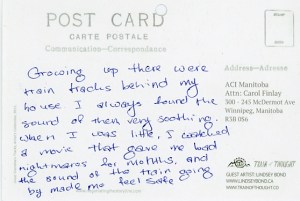 POST CARD
CARTE POSTALE
Communication—Correspondence
Address—Adresse
Growing up there were
train tracks behind my
house I always found the
sound of them very soothing.
When I was little, I watched
a movie that gave me bad
nightmares for months, and
the sound of the train going
by made me feel safe
ACI Manitoba
Attn: Carol Finlay
300 - 245 McDermot Ave
Winnipeg, Manitoba
R3B 0S6
TRAIN of THOUGHT
GUEST ARTIST: LINDSEY BOND
WWW.LINDSEYBOND.CA
WWW.TRAINOFTHOUGHT.CC